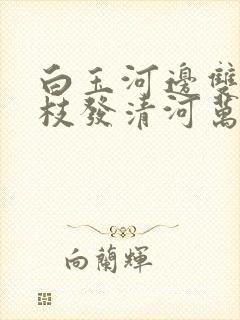 白玉河邊雙
枝發清河萬
向蘭輝